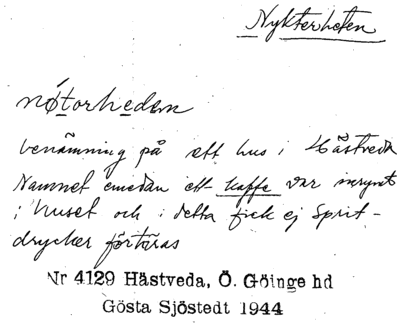 Nykterheten
nǿtorhedsn
benämning på ett hus i Hästveda
Namnet emedan ett kaffe var inrymt
i huset och i detta fick ej Sprit-
drycker förtäras
Nr 4129 Hästveda, Ö. Göinge hd
Gösta Sjöstedt 1944